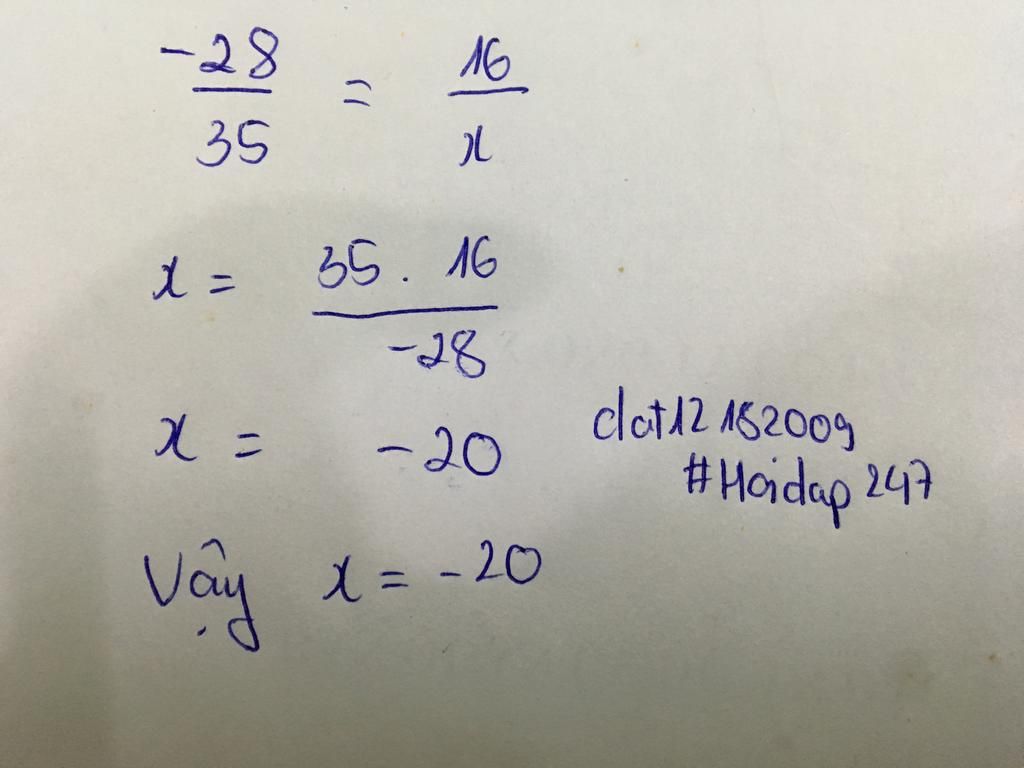 -28/35 = 16/x
x = 35 . 16/-28
x = -20
dat12182009
#Hoidap247
Vậy x = -20